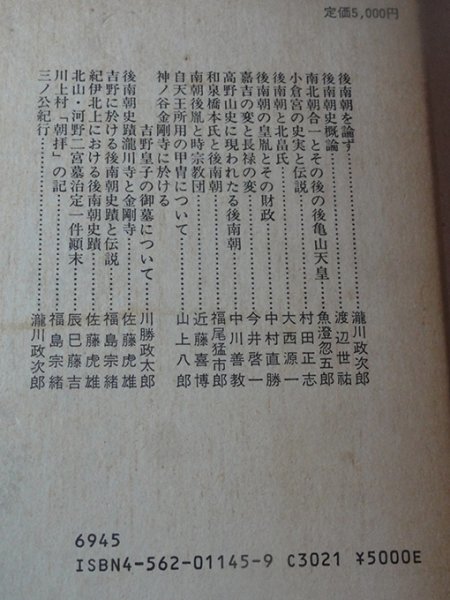 定価5,000円
後南朝を論ず………瀧川政次郎
後南朝史概論………渡辺世祐
南北朝合一とその後の後亀山天皇………魚澄惣五郎
小倉宮の史実と伝説………村田正志
後南朝と北畠氏………大西源一
後南朝の皇胤とその財政………中村直勝
嘉吉の変と長禄の変………今井啓一
高野山史に現われたる後南朝………中川善教
和泉橋本氏と後南朝………福尾猛市郎
南朝後胤と時宗教団………近藤喜博
自天王所用の甲冑について………山上八郎
神ノ谷金剛寺に於ける
吉野皇子の御墓について………川勝政太郎
後南朝史蹟瀧川寺と金剛寺………佐藤虎雄
吉野に於ける後南朝史蹟と伝説………福島宗緒
紀伊北上における後南朝史蹟………佐藤虎雄
北山・河野二宮墓治定一件顚末………辰巳藤吉
川上村「朝拝」の記………福島宗緒
三ノ公紀行………瀧川政次郎
6945
ISBN4-562-01145-9 C3021 ¥5000E